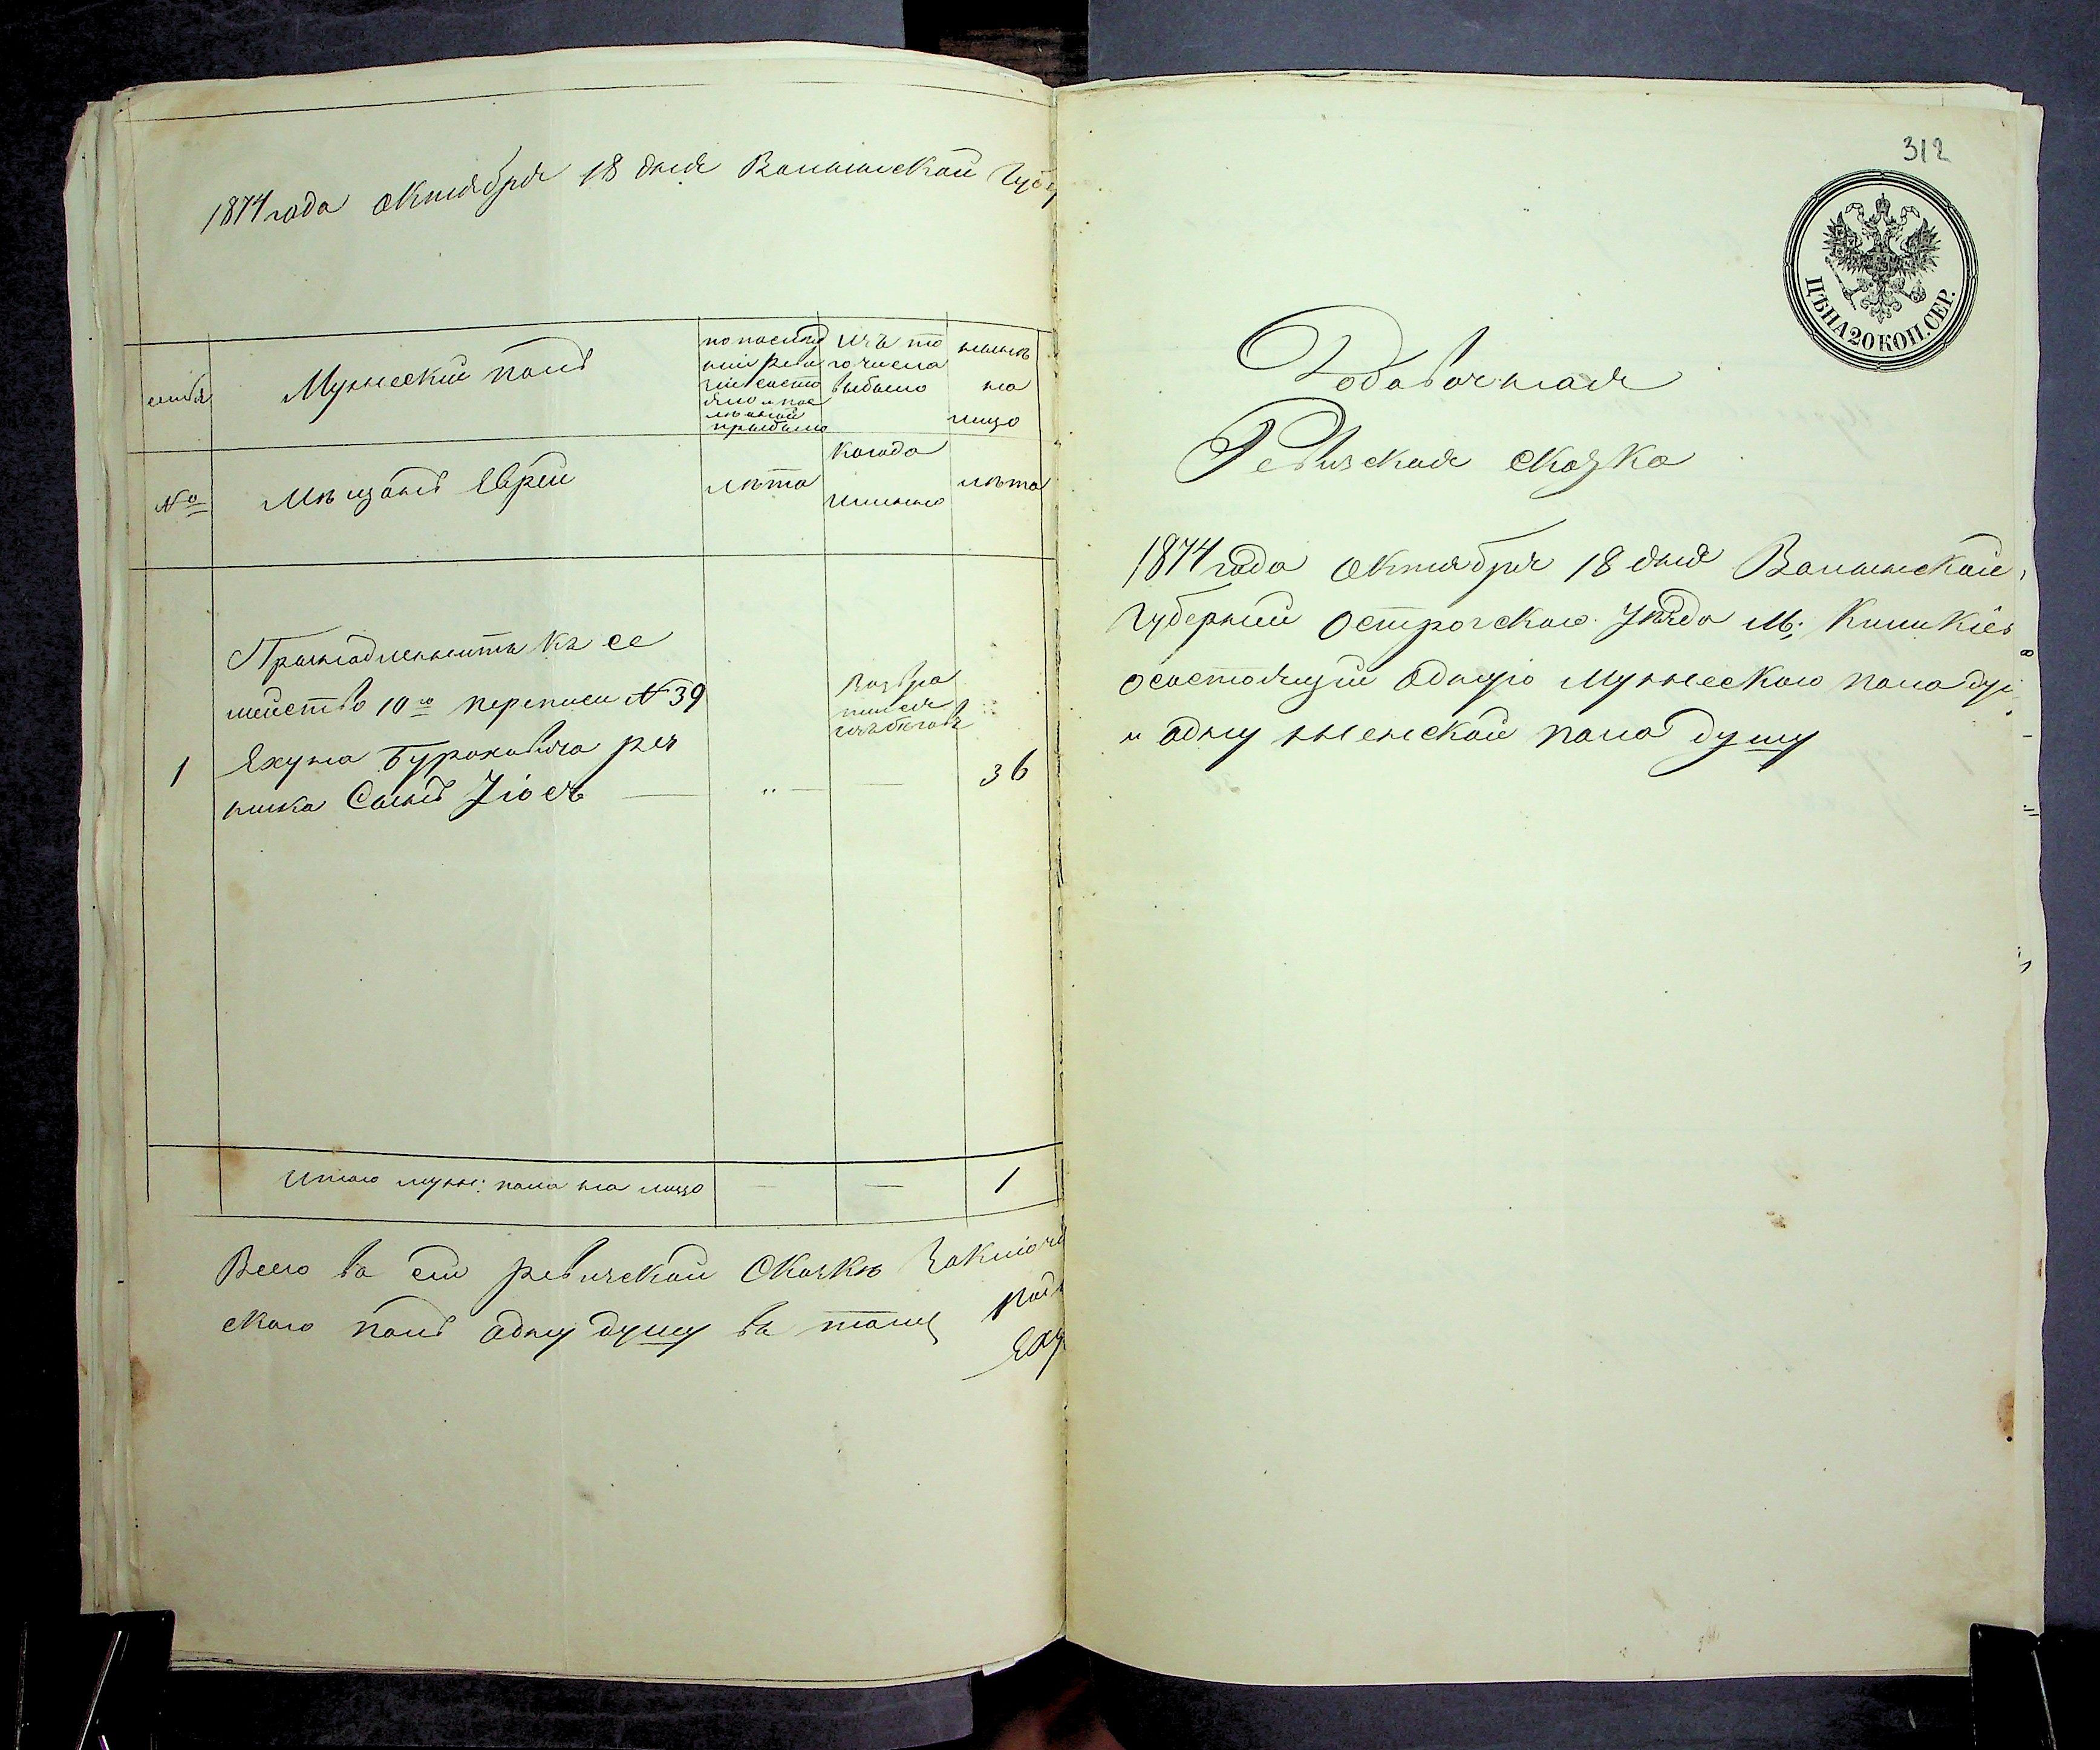 1874 года октября 18 дня Волынской Губе
семьи
Мужескій полъ
по послед
ній реви
зіи состо
яло и пос
лѣ оной
прибыло
изъ то
го числа
выбыло
нынѣ
на
лицо
№
Мѣщанъ Еврей
лѣта
когда
именно
лѣта
Принадлежитъ къ се
мейство 10го переписи №39
1
Ехуна Бураковича рез
ника Сынъ
"
Возвра
тился
изъ бѣговъ
—
36
Итого муж: пола на лицо
—
—
1
Всего въ сей ревизской Сказкѣ Заключа
ского полъ одну душу въ томъ
312
ЦѢНА 20 КОП. СЕР.
Добавочная
Ревизская сказка
1874 года октября 18 дня Волынской
Губерніи Острогского Уѣзда М; Куникіев
о состоящій одную Мужеского пола
и одну женской пола душу